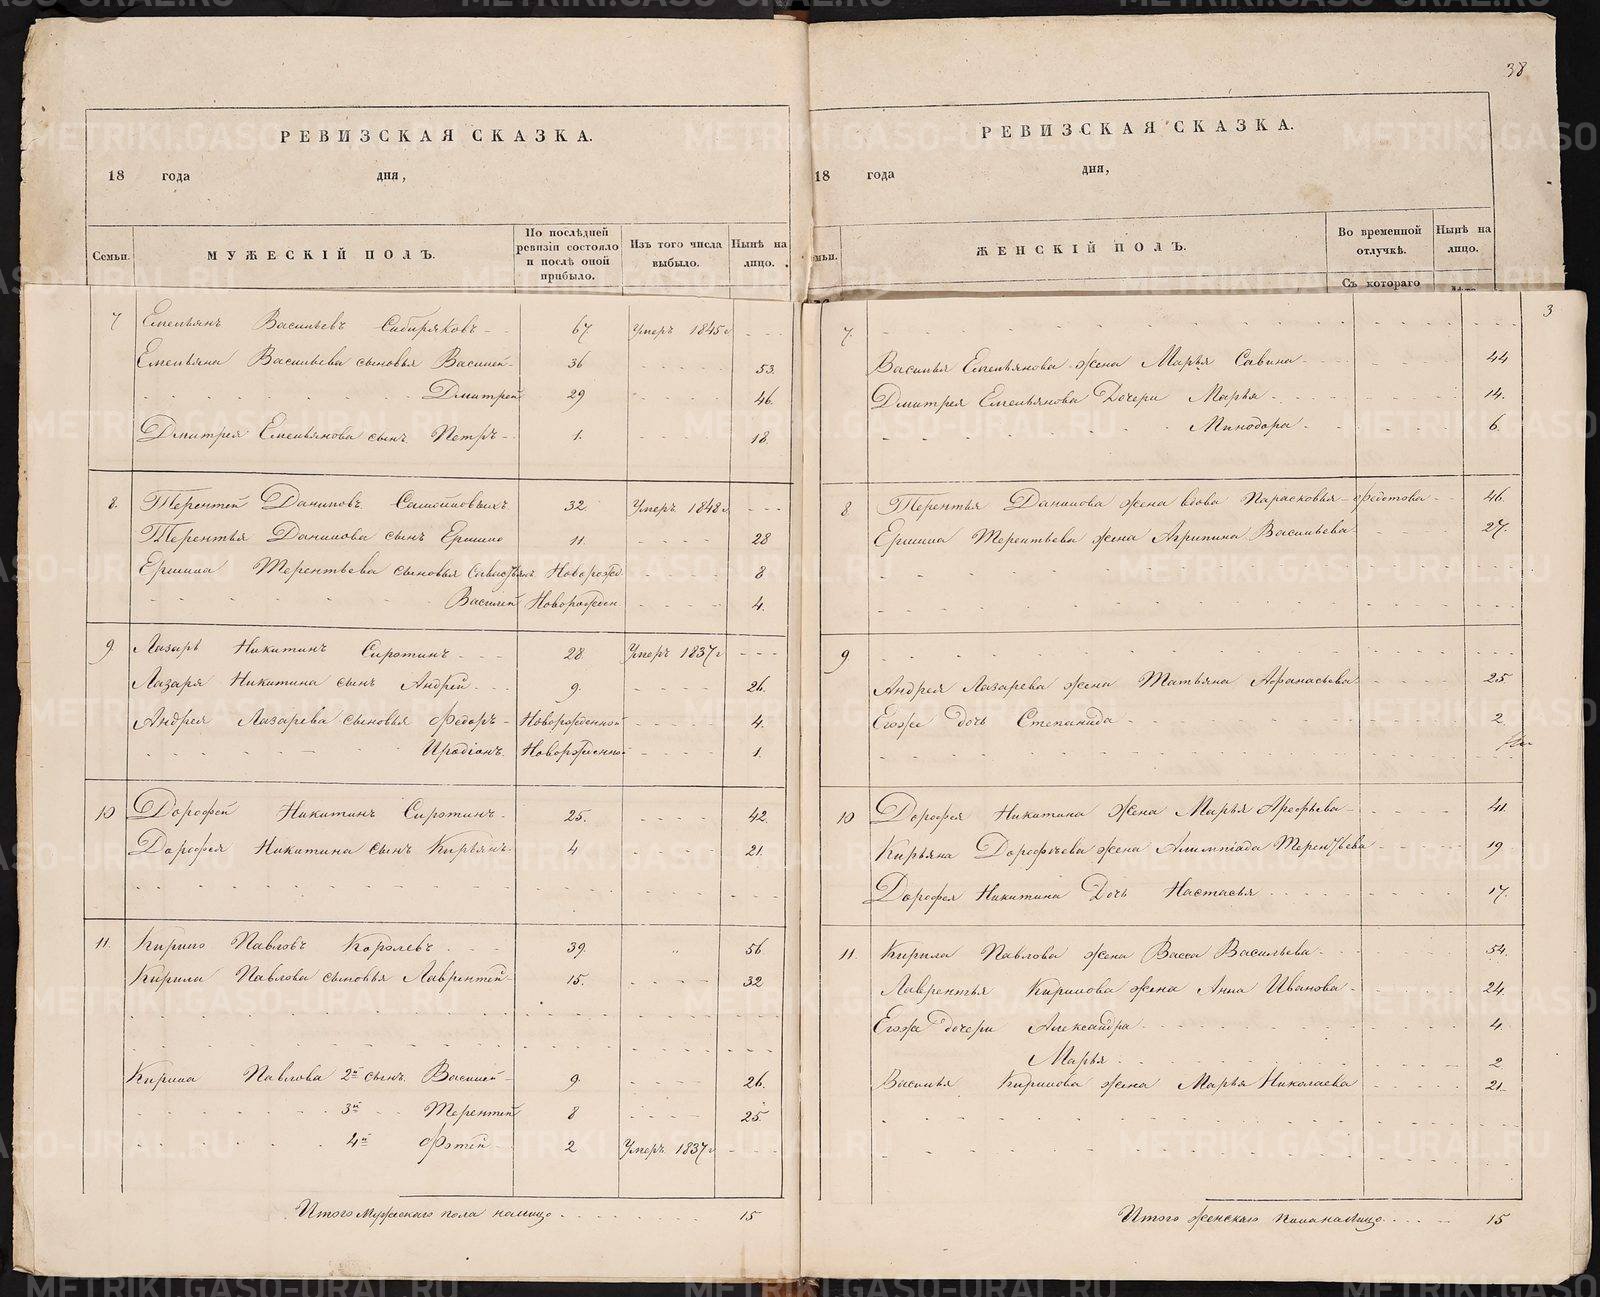 38
РЕВИЗСКАЯ СКАЗКА.
18 года дня,
Семьи. МУЖЕСКІЙ ПОЛЪ. По послѣдней ревизіи состояло и послѣ оной прибыло. Изъ того числа выбыло. Нынѣ на лицо.
7 Емельянъ Васильевъ Сибиряковъ 67 Умеръ 1845 г
Емельяна Васильева сыновья Василей 36 53.
Дмитрей 29 46.
Дмитрея Емельянова сынъ Петръ 1. 18.
8. Терентей Даниловъ 32 Умеръ 1848 г
Терентья Данилова сынъ Ермило 11. 28
Ермила Терентьева сыновья Савастьянъ Новорожд. 8
Василей Новорожден. 4.
9. Лазарь Никитинъ Сиротинъ 28. Умеръ 1837 г
Лазаря Никитина сынъ Андрей 9. 26.
Андрея Лазарева сыновья Федоръ Новорожденной 4.
Иродіонъ Новорожденной 1.
10 Дорофей Никитинъ Сиротинъ 25. 42.
Дорофея Никитина сынъ Кирьянъ 4 21.
11. Кирило Павловъ Королевъ 39. 56
Кирила Павлова сыновья Лаврентей 15. 32
Кирила Павлова 2й сынъ Василей 9. 26.
3й Терентей 8 25.
4й Фотей 2 Умеръ 1837 г
Итого Мужескаго пола налицо 15
РЕВИЗСКАЯ СКАЗКА.
18 года дня,
мьи. ЖЕНСКІЙ ПОЛЪ. Во временной отлучкѣ. Нынѣ на лицо.
Съ котораго Лѣта
3
7.
Василья Емельянова жена Марья Савина 44
Дмитрея Емельянова Дочери Марья 14.
Минодора 6.
8 Терентья Данилова жена вдова Парасковья Федотова 46.
Ермила Терентьева жена Агрипина Васильева 27.
9
Андрея Лазарева жена Татьяна Афанасьева 25
Егоже дочь Степанида 2.
10 Дорофея Никитина жена Марья Арефьева 41.
Кирьяна Дорофѣева жена Алимпіада Терентьева 19
Дорофея Никитина Дочь Настасья 17.
11. Кирила Павлова жена Васса Васильева 54.
Лаврентья Кирилова жена Анна Иванова 24.
Егоже дочери Александра 4.
Марья 2
Василья Кирилова жена Марья Николаева 21.
Итого женскаго пола налицо 15
METRIKI.GASO-URAL.RU